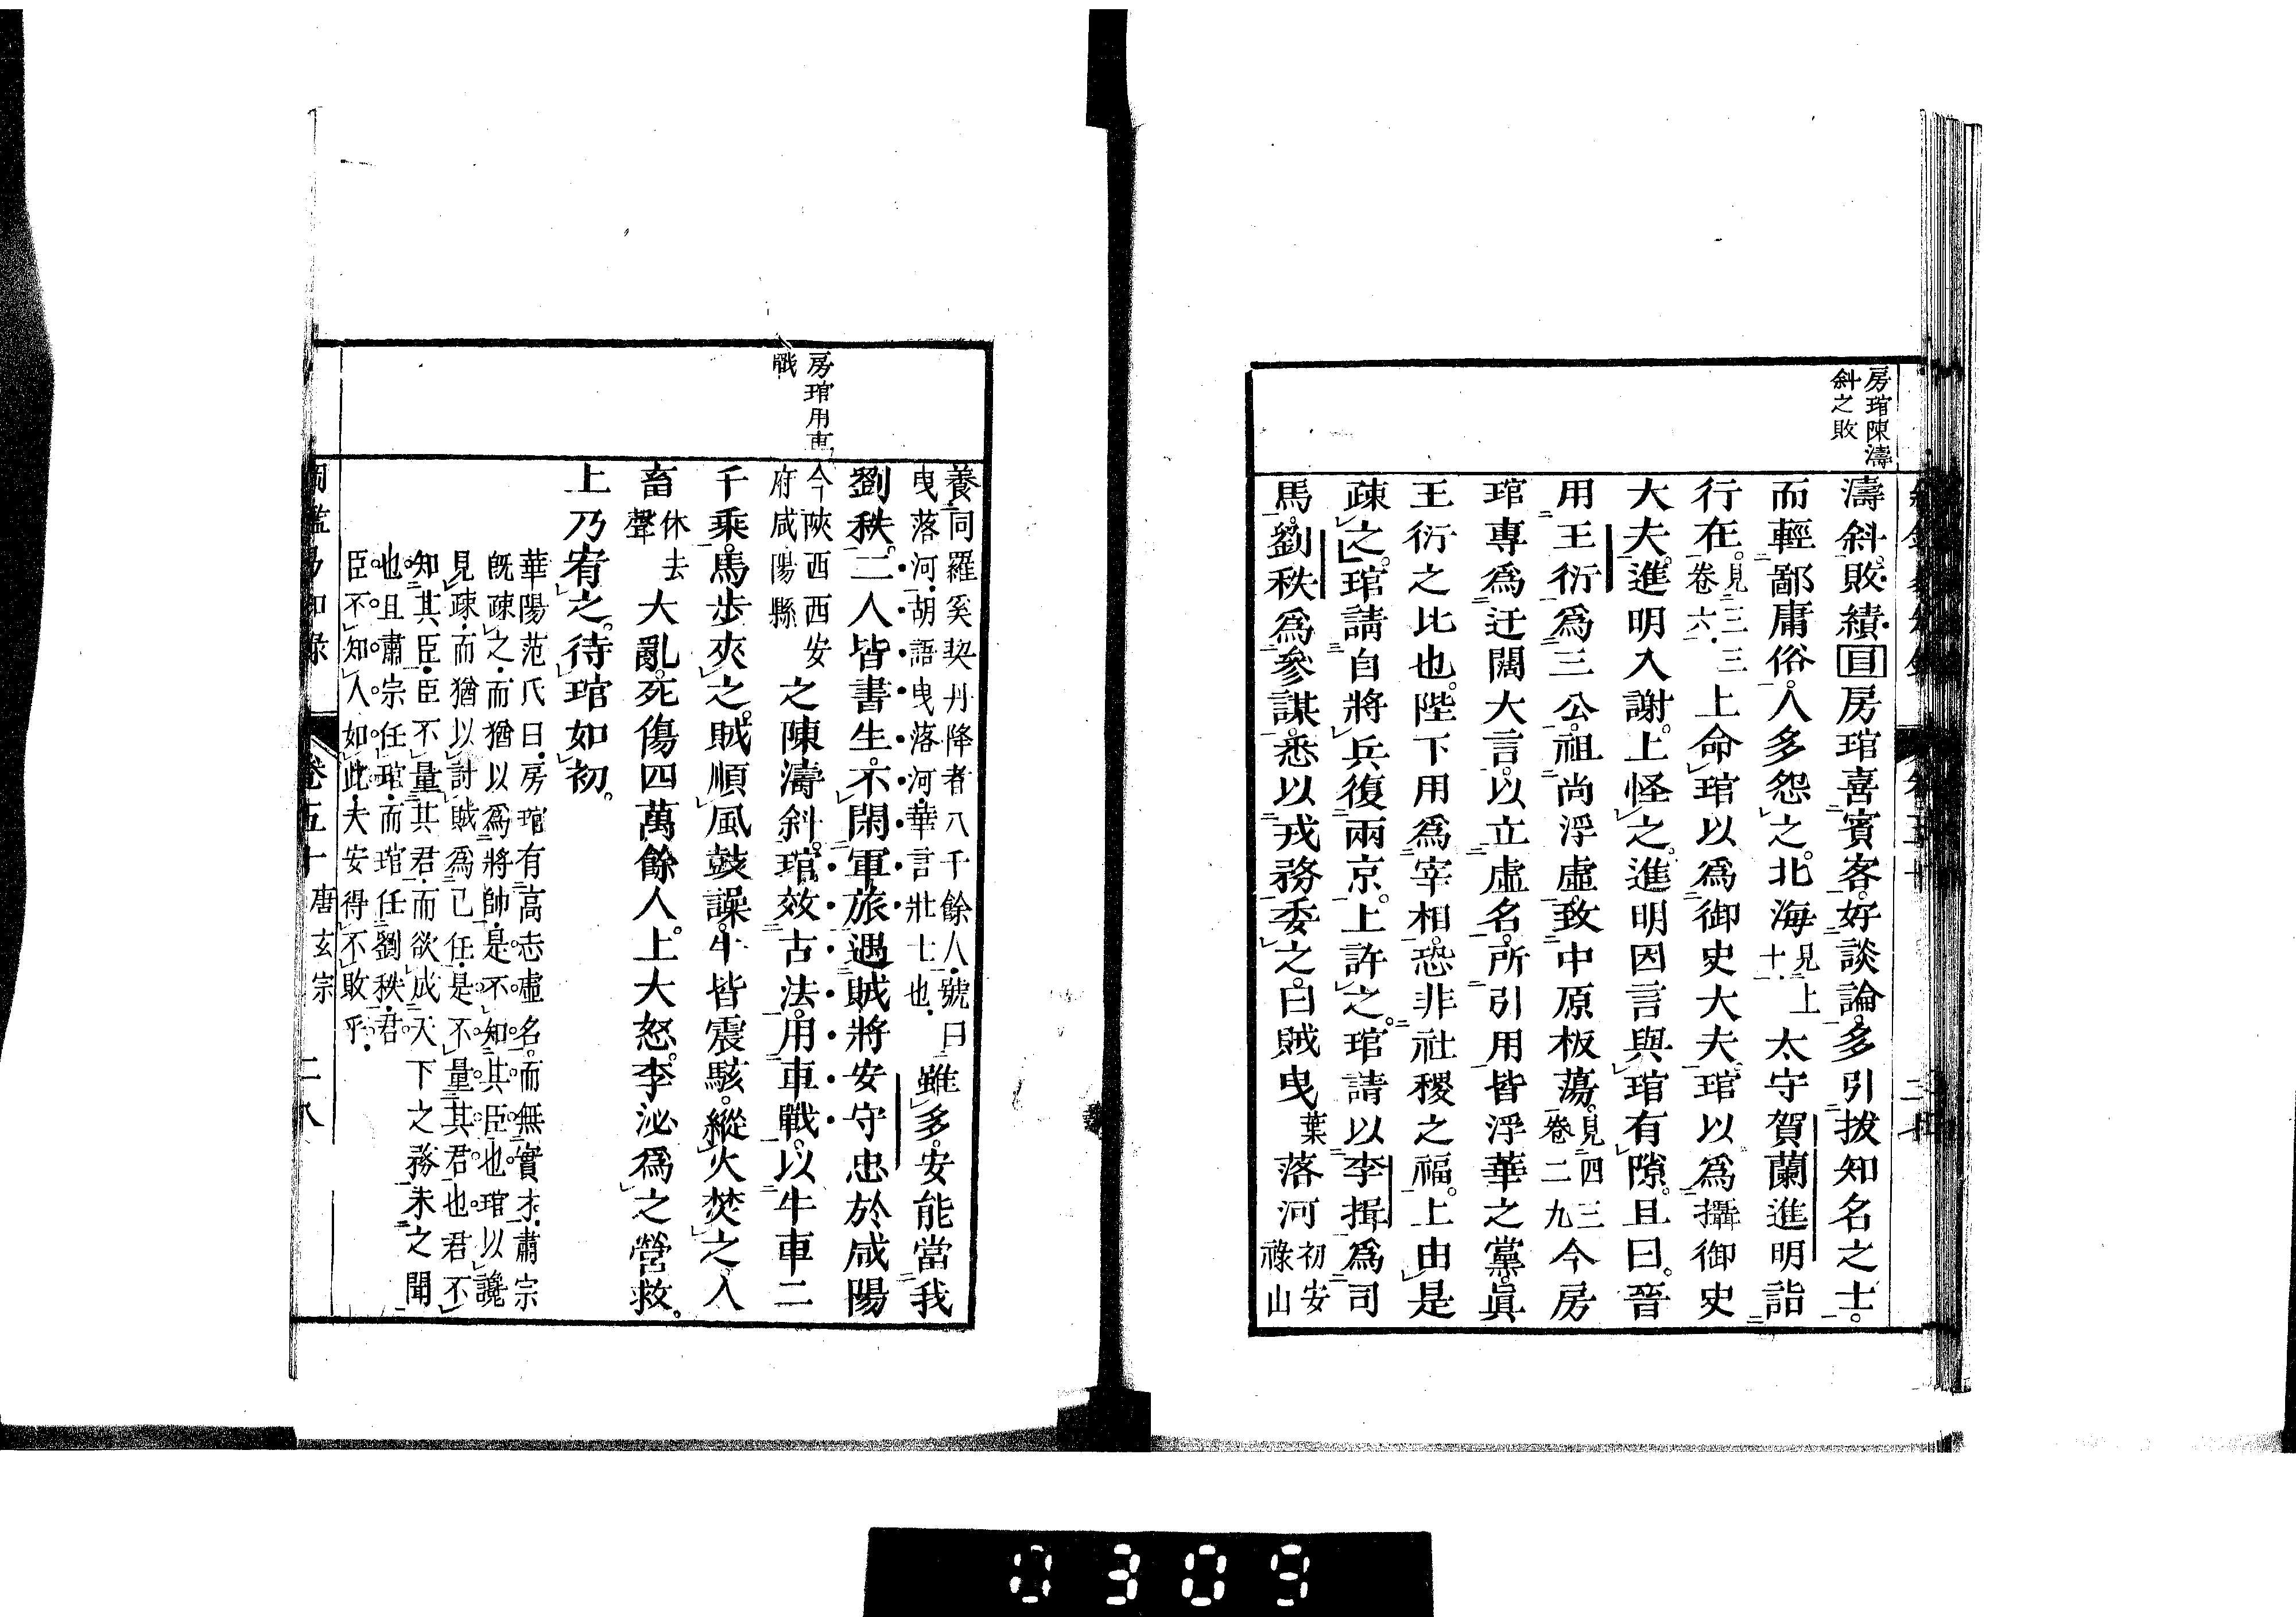 房琯陳濤
斜之敗
濤斜。敗績。目房琯喜賓客。好談論。多引拔知名之士。
而輕鄙庸俗。人多怨之。北海見上十太守賀蘭進明詣
行在。見三三卷六上命琯以爲御史大夫。琯以爲攝御史
大夫。進明入謝。上怪之。進明因言與琯有隙。且曰。晉
用王衍爲三公。祖尚浮虛。致中原板蕩。見四三卷二九今房
琯專爲迂闊大言。以立虛名。所引用皆浮華之黨。眞
王衍之比也。陛下用爲宰相。恐非社稷之福。上由是
疎之。琯請自將兵復兩京。上許之。琯請以李揖爲司
馬。劉秩爲參謀。悉以戎務委之。曰賊曳葉落河初安祿山
養同羅奚契丹降者八千餘人。號曰曳落河。胡語曳落河。華言壯士也。雖多。安能當我
劉秩。二人皆書生。不閑軍旅。遇賊將安守忠於咸陽
房琯用車
戰
今陝西西安府咸陽縣之陳濤斜。琯效古法。用車戰。以牛車二
千乘。馬步夾之。賊順風鼓譟。牛皆震駭。縱火焚之。人
畜休去聲大亂。死傷四萬餘人。上大怒。李泌爲之營救。
上乃宥之。待琯如初。
華陽范氏曰。房琯有高志虛名。而無實才。肅宗
旣疎之。而猶以爲將帥。是不知其臣也琯以讒
見疎。而猶以討賊爲己任。是不量其君也君不
知其臣。臣不量其君。而欲成天下之務未之聞
也。且肅宗任琯。而琯任劉秩。君
臣不知人如此。夫安得不敗乎。
卷五十 唐玄宗 二八